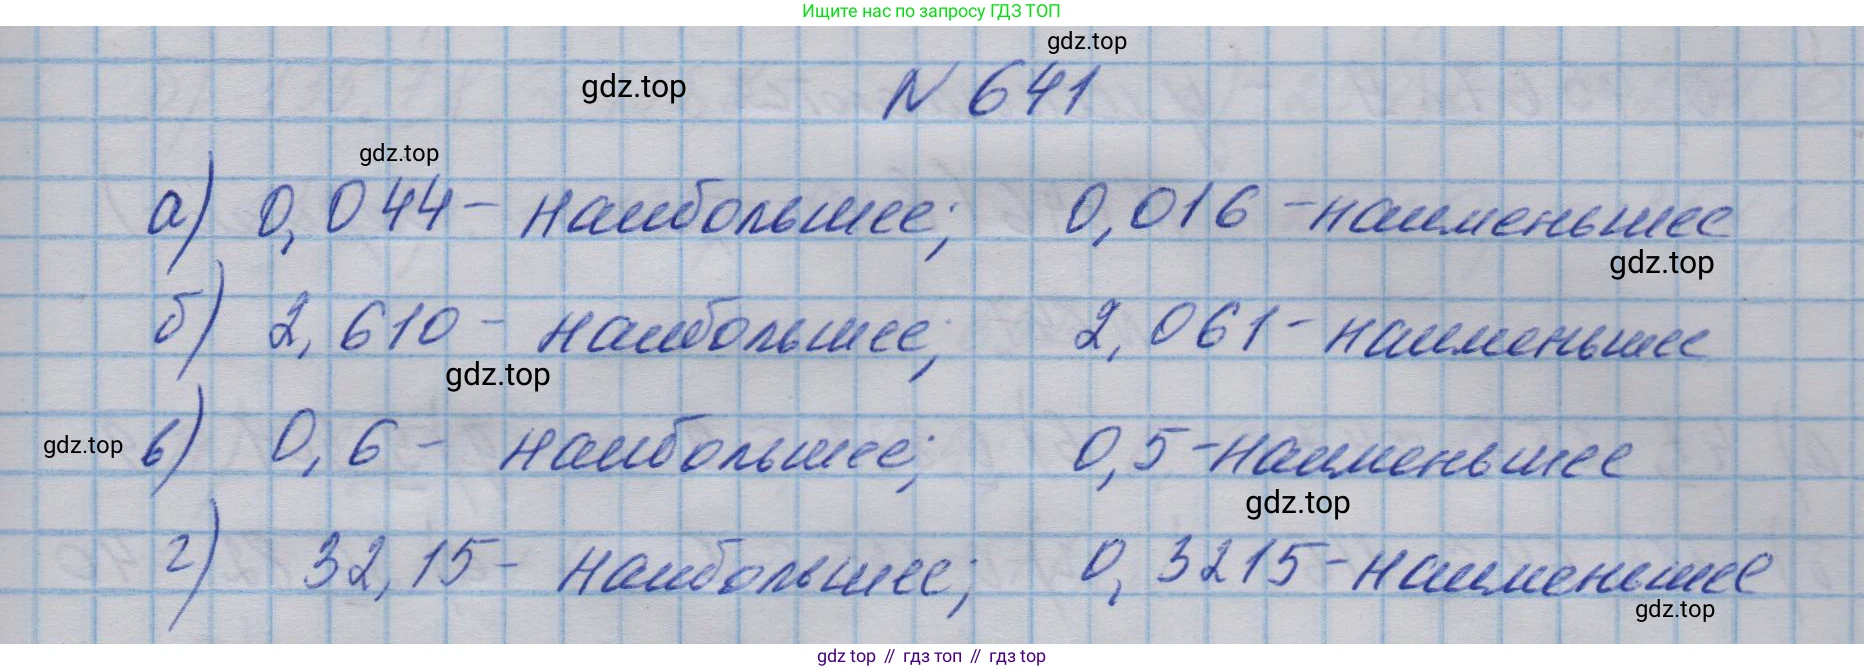 Ищите нас по запросу ГДЗ ТОП
gdz.top
gdz.top
N 641
gdz.top
а) 0,044 - наибольшее; 0,016 - наименьшее
gdz.top
б) 2,610 - наибольшее; 2,061 - наименьшее
gdz.top
gdz.top
в) 0,6 - наибольшее; 0,5 - наименьшее
gdz.top
г) 32,15 - наибольшее; 0,3215 - наименьшее
gdz.top
gdz top // гдз топ // гдз top